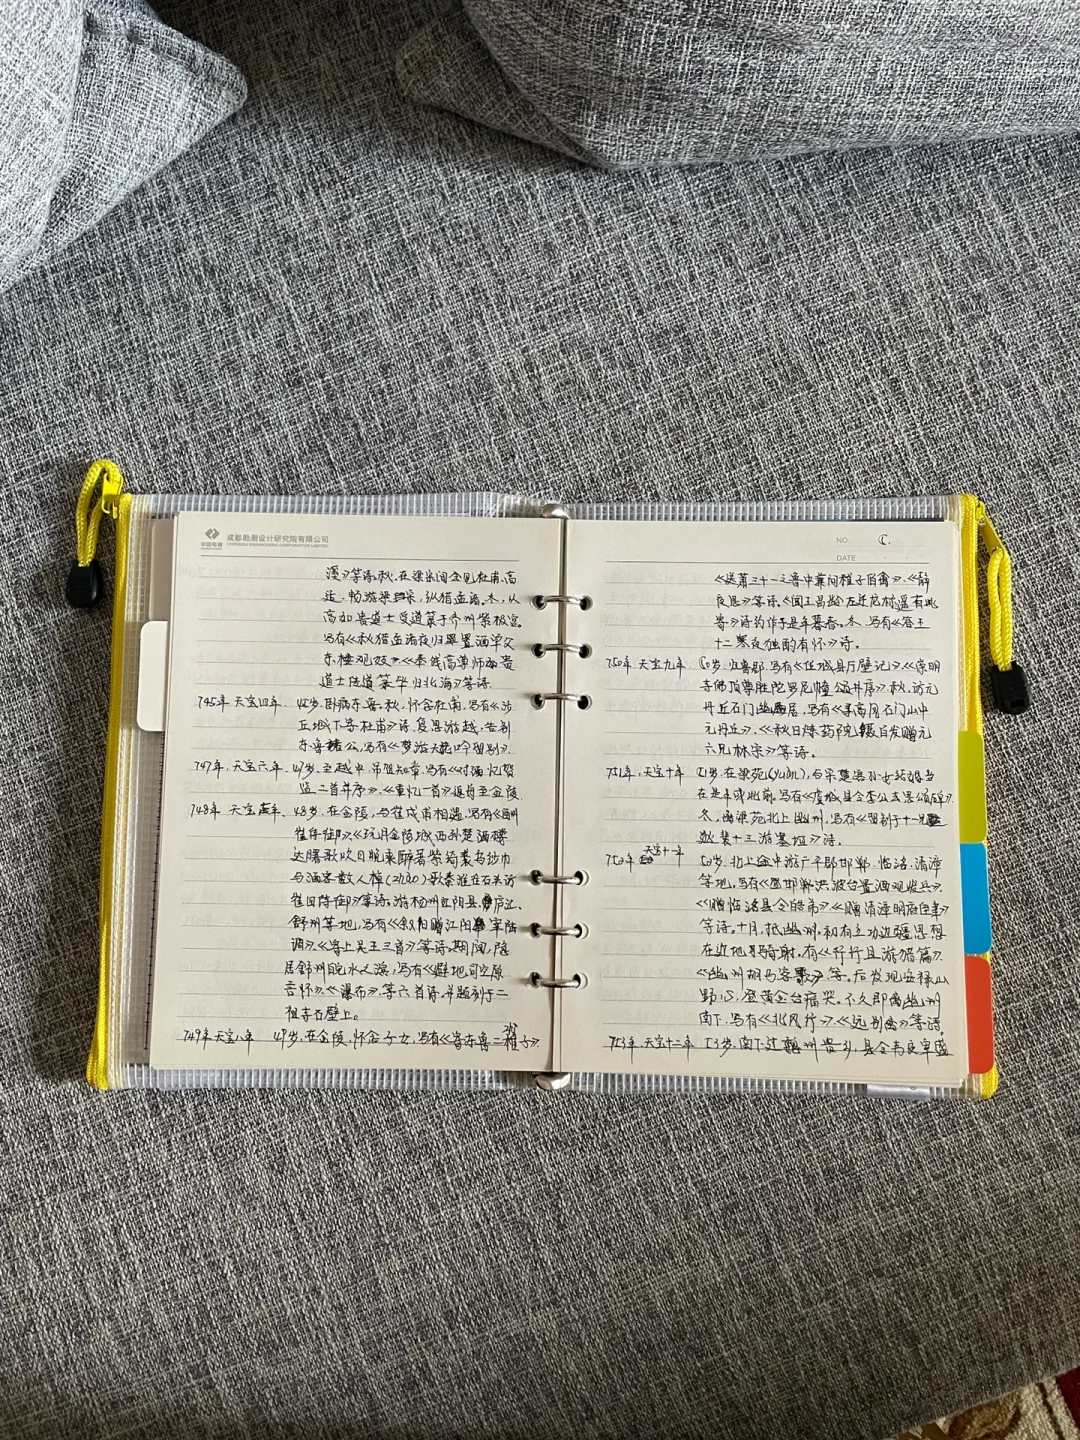 中国电建
成都勘测设计研究院有限公司
CHENGDU ENGINEERING CORPORATION LIMITED
溪》等诗。秋，在梁宋间会见杜甫、高
适，畅游梁宋，纵猎孟诸。冬，从
高如贵道士受道箓于齐州紫极宫。
写有《秋猎孟诸夜归置酒单父
东楼观妓》《奉饯高尊师如贵
道士传道箓毕归北海》等诗。
745年 天宝四年、 45岁、卧病东鲁。秋，怀念杜甫，写有《沙
丘城下寄杜甫》诗，复思游越，告别
东鲁诸公，写有《梦游天姥吟留别》.
747年、天宝六年、47岁、至越中，吊祖知章，写有《对酒忆贺
监二首并序》、《重忆一首》返舟至金陵.
748年 天宝 年、48岁，在金陵，与崔成甫相遇，写有《酬
崔侍御》《玩月金陵城西孙楚酒楼
达曙歌吹日晚乘醉著紫绮裘乌纱巾
与酒客数人棹(zhao)歌秦淮往石头访
崔四侍御》等诗. 游杨州江阳县、庐江、
舒州等地，写有《叙旧赠江阳宰陆
调》、《寄上吴王三首》等诗. 期间，隐
居舒州皖水之滨，写有《避地司空原
言怀》、《瀑布》、等六首诗，并题刻于二
祖寺石壁上。
749年 天宝八年 49岁、在金陵，怀念子女，写有《寄东鲁二稚子》、
NO. C.
DATE
《送萧三十一之鲁中兼问稚子伯禽》、《静
夜思》等诗.《闻王昌龄左迁龙标遥有此
寄》诗约作于是年暮春。冬，写有《答王
十二寒夜独酌有怀》诗.
750年 天宝九年、50岁、归鲁郡，写有《任城县厅壁记》、《崇明
寺佛顶尊胜陀罗尼幢颂并序》. 秋，访元
丹丘石门幽居，写有《寻高凤石门山中
元丹丘》、《秋日炼药院镊白发赠元
六兄林宗》等诗。
751年、天宝十年 51岁、在梁苑(yuan)，与宗楚客孙女结婚当
在是年或此前，写有《虞城县令李公去思颂碑》.
冬，由梁苑北上幽州，写有《留别于十一兄
逖裴十三游塞垣》诗.
752年 天宝十一年 52岁、北上途中游广平郡邯郸、临洺、清漳
等地，写有《登邯郸洪波台置酒观发兵》、
《赠临洺县令皓弟》《赠清漳明府侄聿》
等诗，十月，抵幽州，初有立功边疆思想
在边地习骑射，有《行行且游猎篇》、
《幽州胡马客歌》等. 后发现安禄山
野心，登黄金台痛哭，不久即离幽州
南下，写有《北风行》、《远别离》等诗。
753年、天宝十二年 53岁、南下过魏州贵乡，县令韦良宰盛